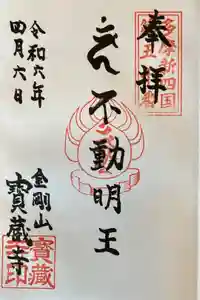 奉拝
多摩新四国
不動明王
令和六年
四月六日
金剛山
寶蔵寺
寶藏
寺印